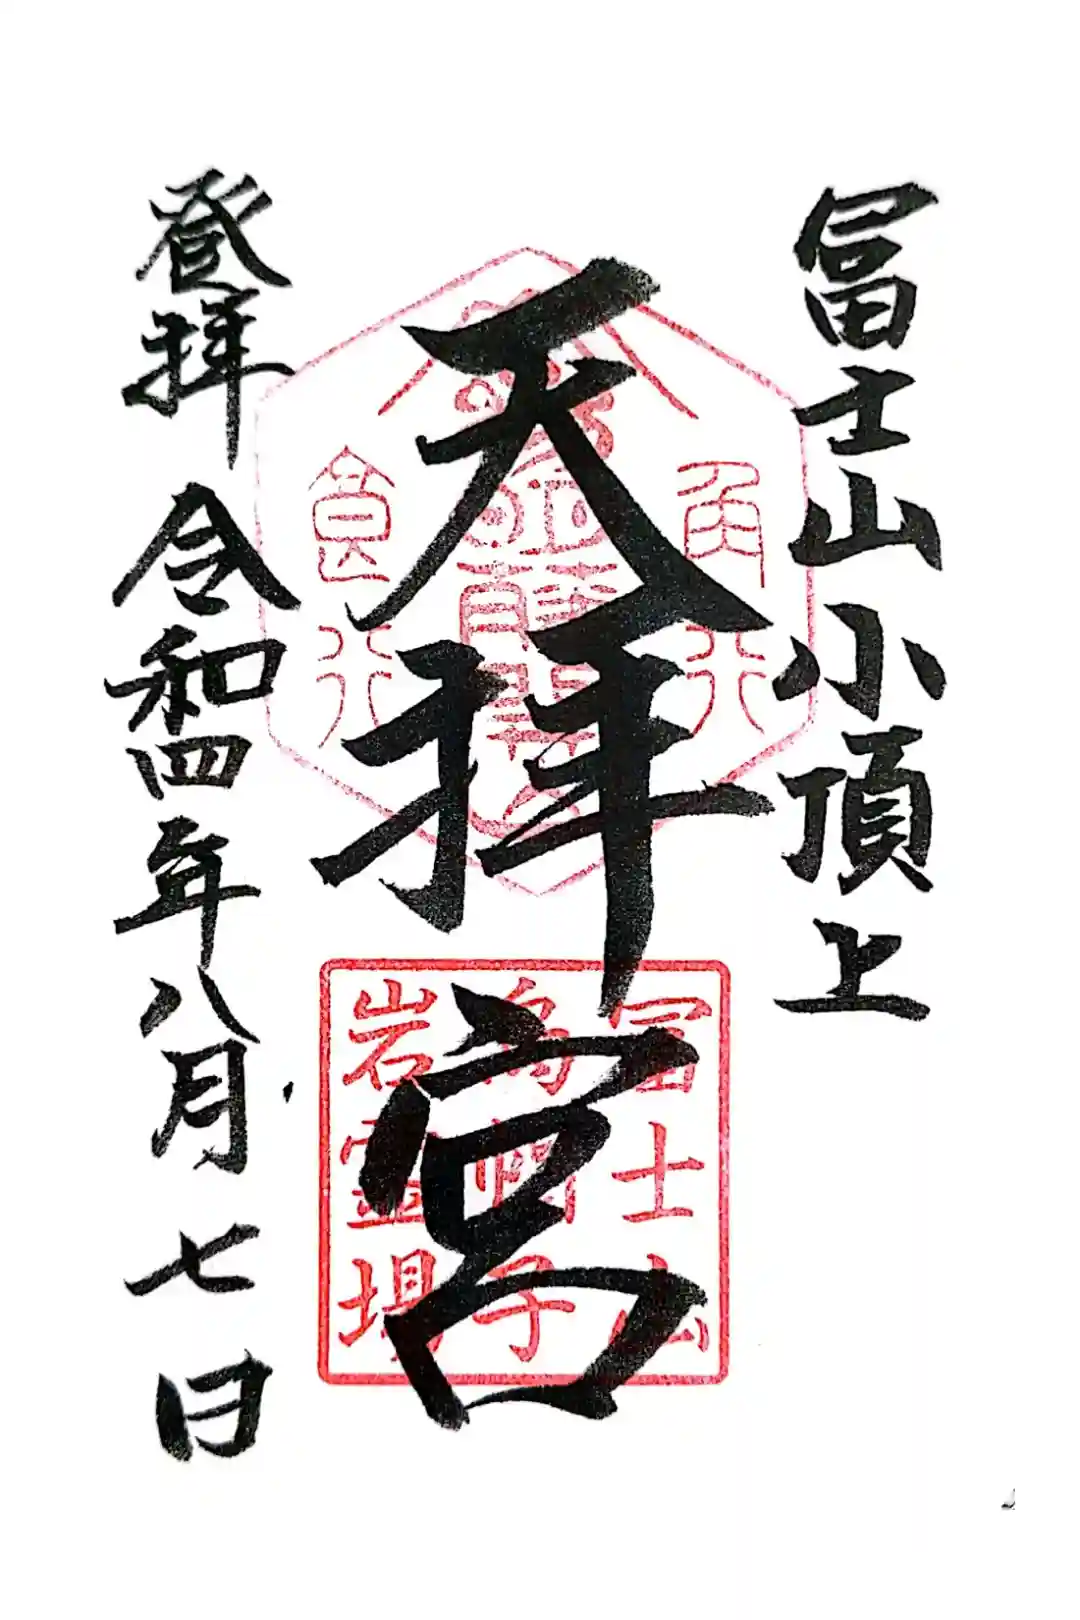 冨士山小頂上
天拝宮
登拝 令和四年八月七日
角行
食行
冨士山
烏帽子
岩霊場